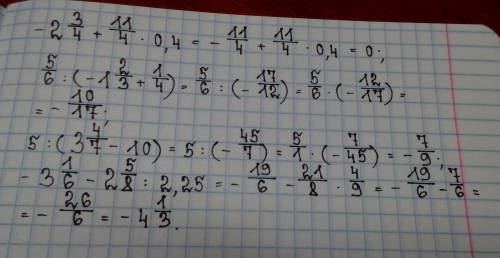 -2 3/4 + 11/4 · 0,4 = - 11/4 + 11/4 · 0,4 = 0;
5/6 : (-1 2/3 + 1/4) = 5/6 : (- 17/12) = 5/6 · (- 12/17) =
= - 10/17.
5 : (3 4/7 - 10) = 5 : (- 45/7) = 5/1 · (7/-45) = - 7/9;
-3 1/6 - 2 5/8 : 2,25 = - 19/6 - 21/8 · 4/9 = - 19/6 - 7/6 =
= - 26/6 = -4 1/3.